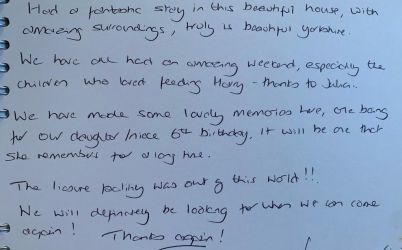 Had a fantastic stay in this beautiful house, with
amazing surroundings, truly is beautiful yorkshire.
We have all had an amazing weekend, especially the
children who loved feeding Harry - thanks to Julia.
We have made some lovely memories here, one being
for our daughter/niece 6th birthday. It will be one that
she remembers for a long time.
The liesure facility was out of this world!!
We will definately be looking for when we can come
again! Thanks again!